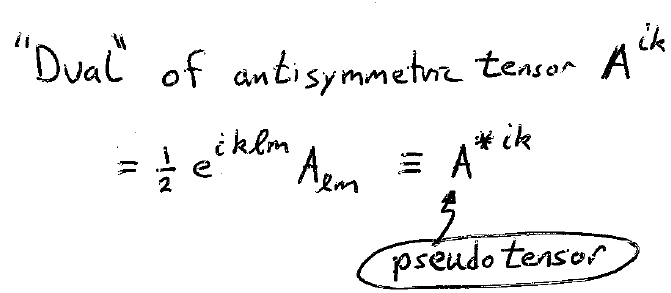 "Dual" of antisymmetric tensor A^{ik}
= 1/2 e^{iklm} A_{lm} ≡ A^{*ik}
pseudotensor